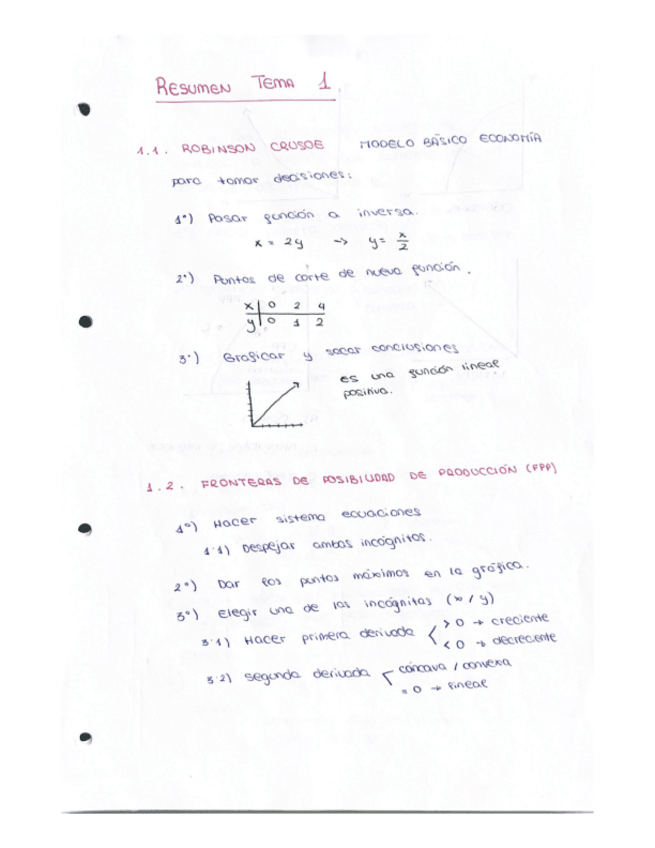 RESUMEN TEMA 1
1.1. ROBINSON CRUSOE MODELO BÁSICO ECONOMÍA
para tomar decisiones:
1º) Pasar función a inversa.
x = 2y -> y = x/2
2º) Puntos de corte de nueva función.
x | 0 2 4
y | 0 1 2
3º) Graficar y sacar conclusiones
es una función lineal
positiva.
1.2. FRONTERAS DE POSIBILIDAD DE PRODUCCIÓN (FPP)
1º) Hacer sistema ecuaciones
1.1) Despejar ambas incógnitas.
2º) Dar los puntos máximos en la gráfica.
3º) Elegir una de las incógnitas (x / y)
3.1) Hacer primera derivada < > 0 → creciente
< 0 → decreciente
3.2) segunda derivada < cóncava / convexa
= 0 → lineal